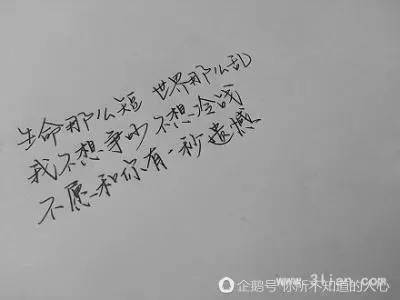 生命那么短 世界那么乱
我不想争吵 不想冷战
不愿和你有一秒遗憾
www.3lian.com
企鹅号 你所不知道的人心